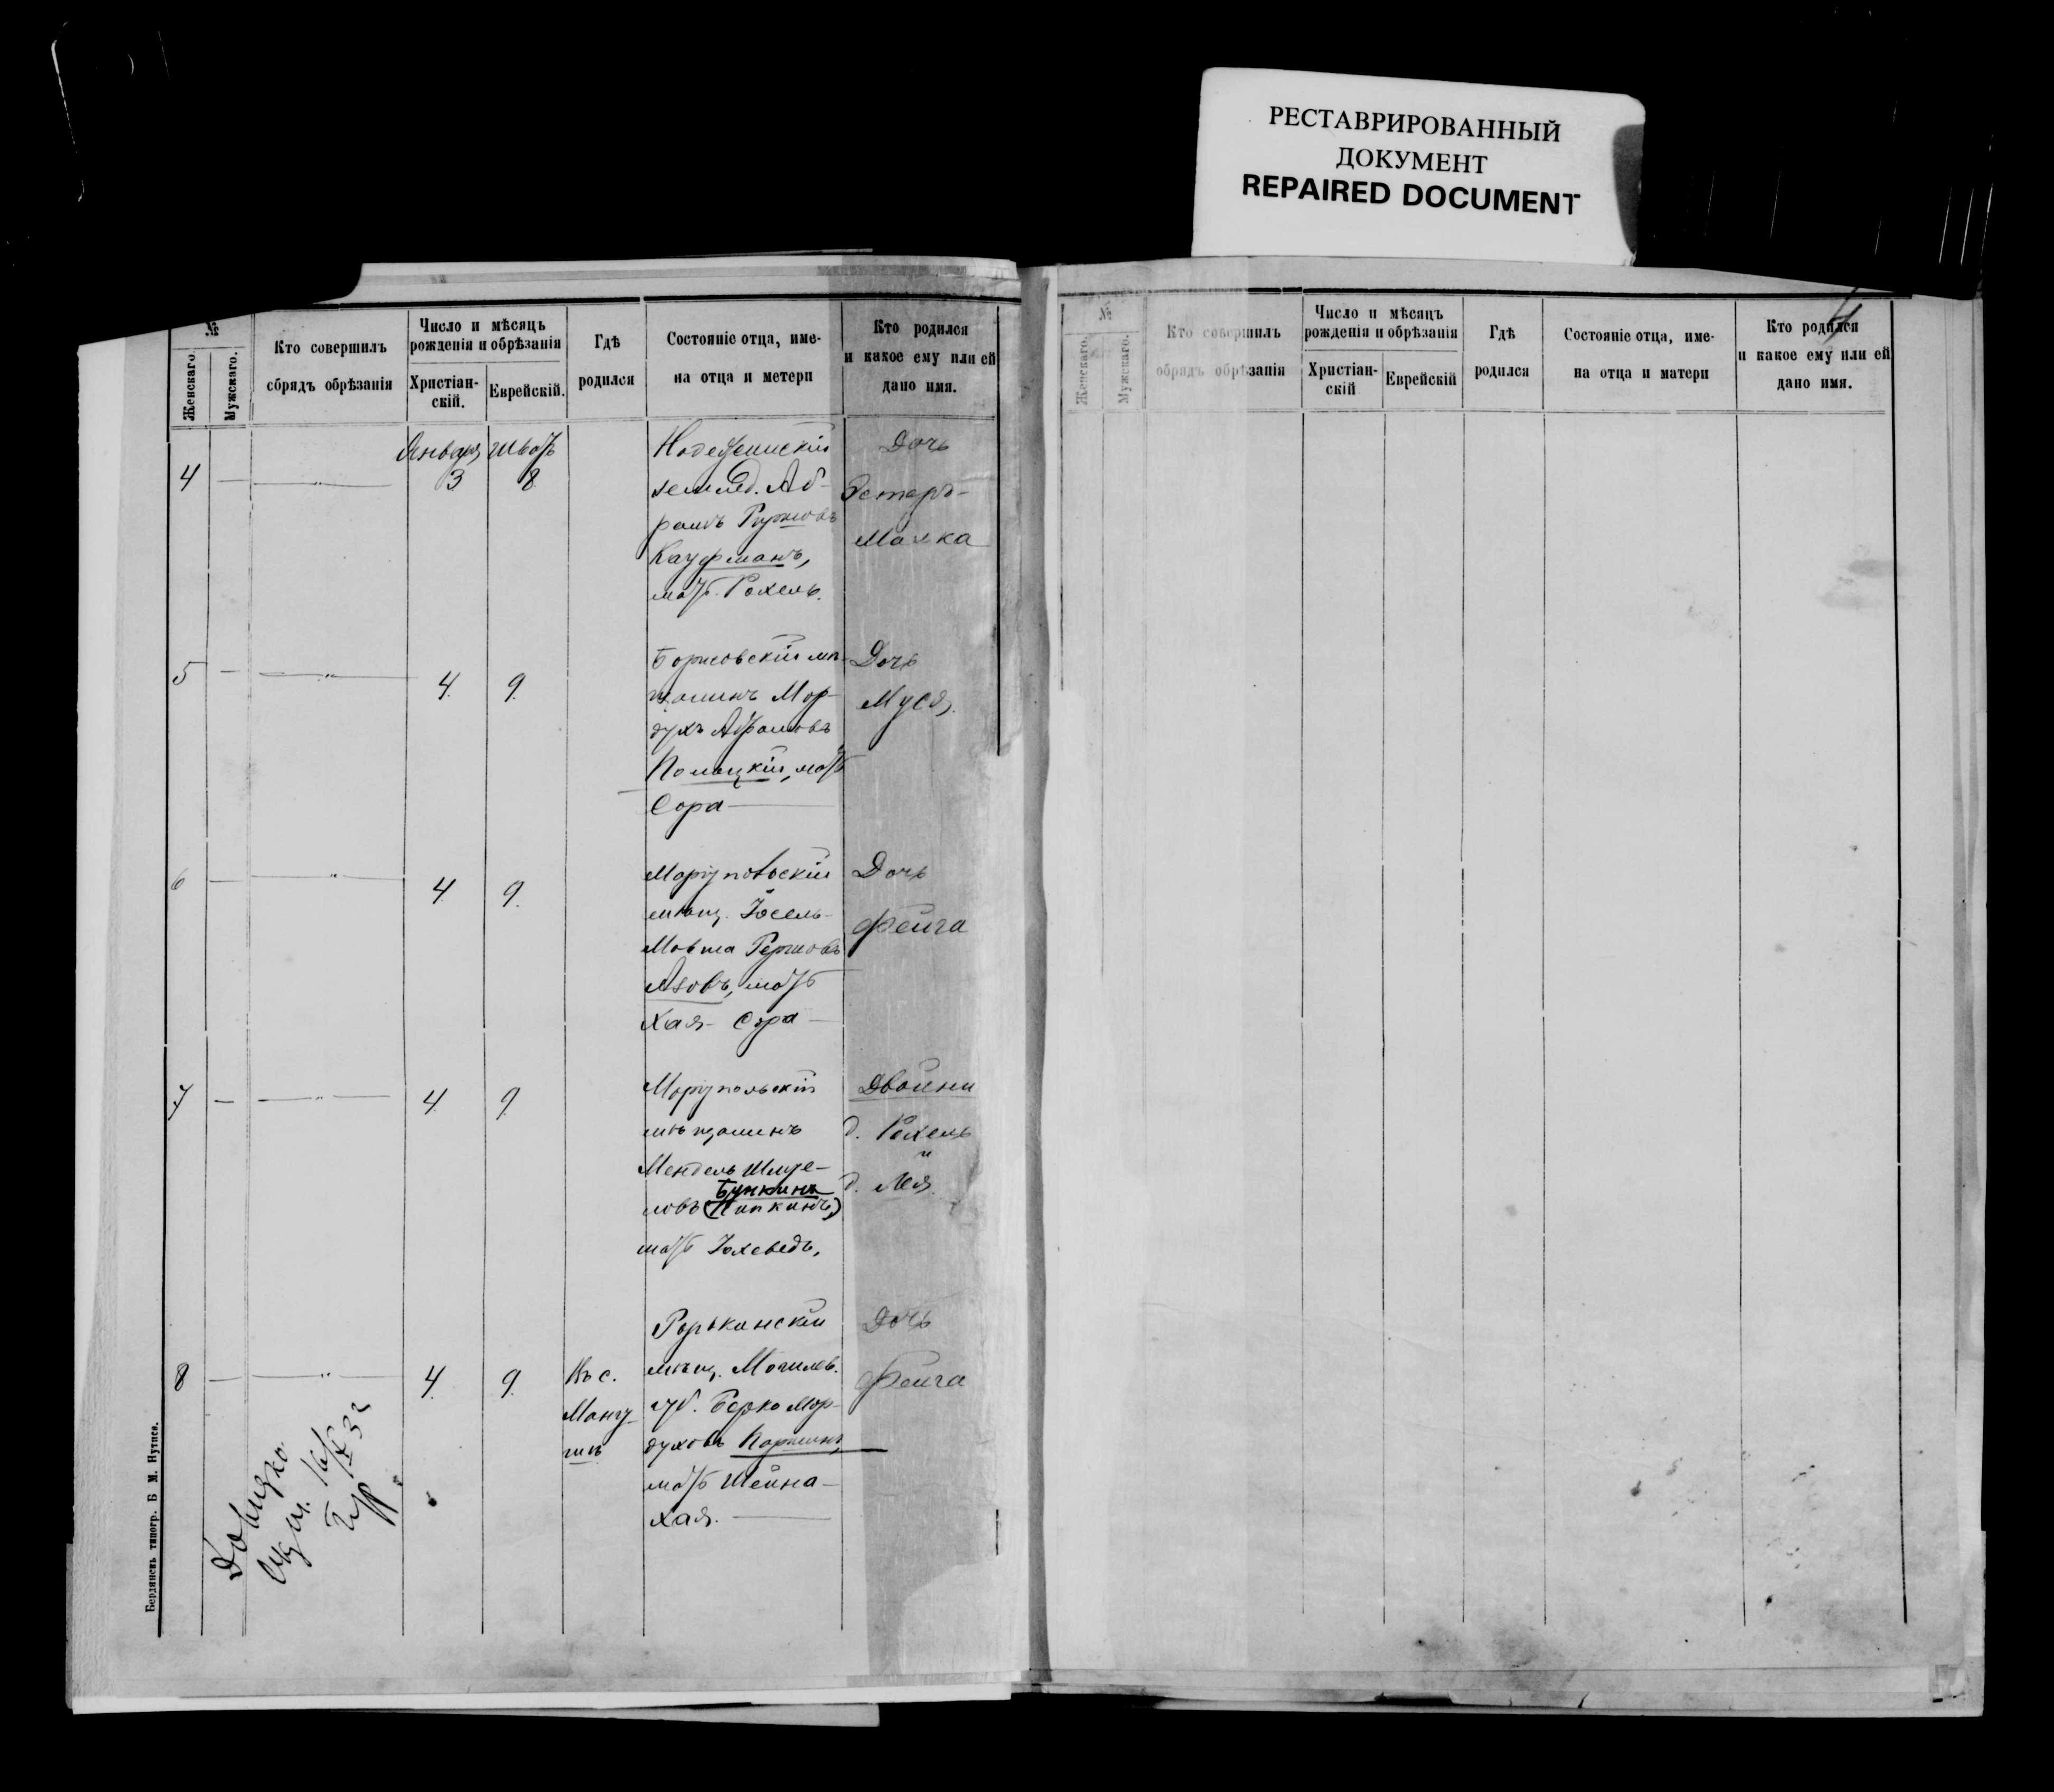 РЕСТАВРИРОВАННЫЙ
ДОКУМЕНТ
REPAIRED DOCUMENT
4
№
Женскаго.
Мужскаго.
Кто совершилъ
сбрядъ обрѣзанія
Число и мѣсяцъ
рожденія и обрѣзанія
Христіан-
скій.
Еврейскій.
Гдѣ
родился
Состояніе отца, име-
на отца и метери
Кто родился
и какое ему или ей
дано имя.
Января
Шватъ
4
3
8
землед. Аб-
рамъ
Кауфманъ,
мать Рохель.
Дочь
Эстеръ-
Малка
5
4
9
Борисовскій мѣ-
щанинъ Мор-
духъ Абрамовъ
мать
Сора
Дочь
Муся
6
4
9
Маріупольскій
мѣщ. Іосель-
Мовша Гершовъ
Азовъ, мать
Хая-Сора
Дочь
Фейга
7
4
9
Маріупольскій
мѣщанинъ
Мендель Шмуе-
Бункинъ
ловъ (Пипкинъ,)
мать Іохеведъ,
Двойни
д. Рохель
и
д. Лея
8
4
9
Въ с.
Мангу-
шѣ
мѣщ. Могилев.
губ. Берко Мор-
духовъ
мать Шейна-
Хая.
Дочь
Фейга
Бердянскъ типогр. Б М. Нутиса.
№
Женскаго.
Мужскаго.
Кто совершилъ
обрядъ обрѣзанія
Число и мѣсяцъ
рожденія и обрѣзанія
Христіан-
скій
Еврейскій
Гдѣ
родился
Состояніе отца, име-
на отца и матери
Кто родился
и какое ему или ей
дано имя.